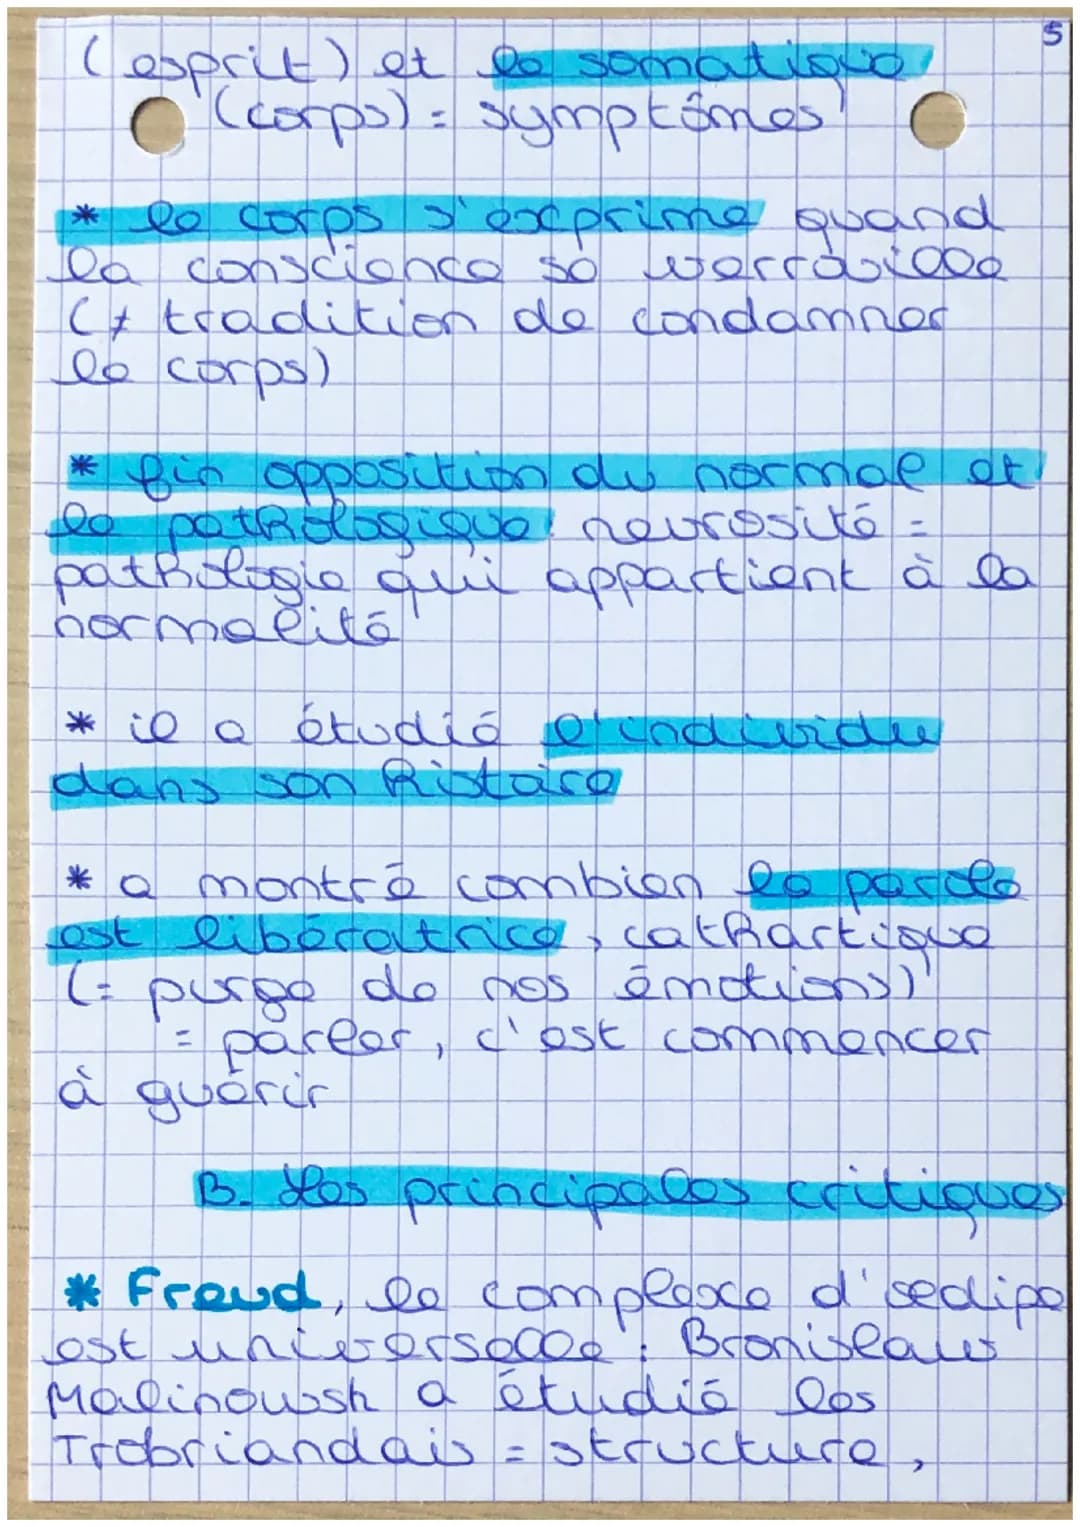 5
(esprit) et le somatique
(corps) = symptômes
* le corps s'exprime quand
la conscience se verrouille
(≠ tradition de condamner
le corps)
* fin opposition du normal et
le pathologique : neurosité =
pathologie qui appartient à la
normalité
* il a étudié l'individu
dans son histoire
* a montré combien la parole
est libératrice, cathartique
(= purge de nos émotions)
= parler, c'est commencer
à guérir
B. Les principales critiques
* Freud, le complexe d'œdipe
est universelle : Bronislaw
Malinowsh a étudié les
Trobriandais = structure,